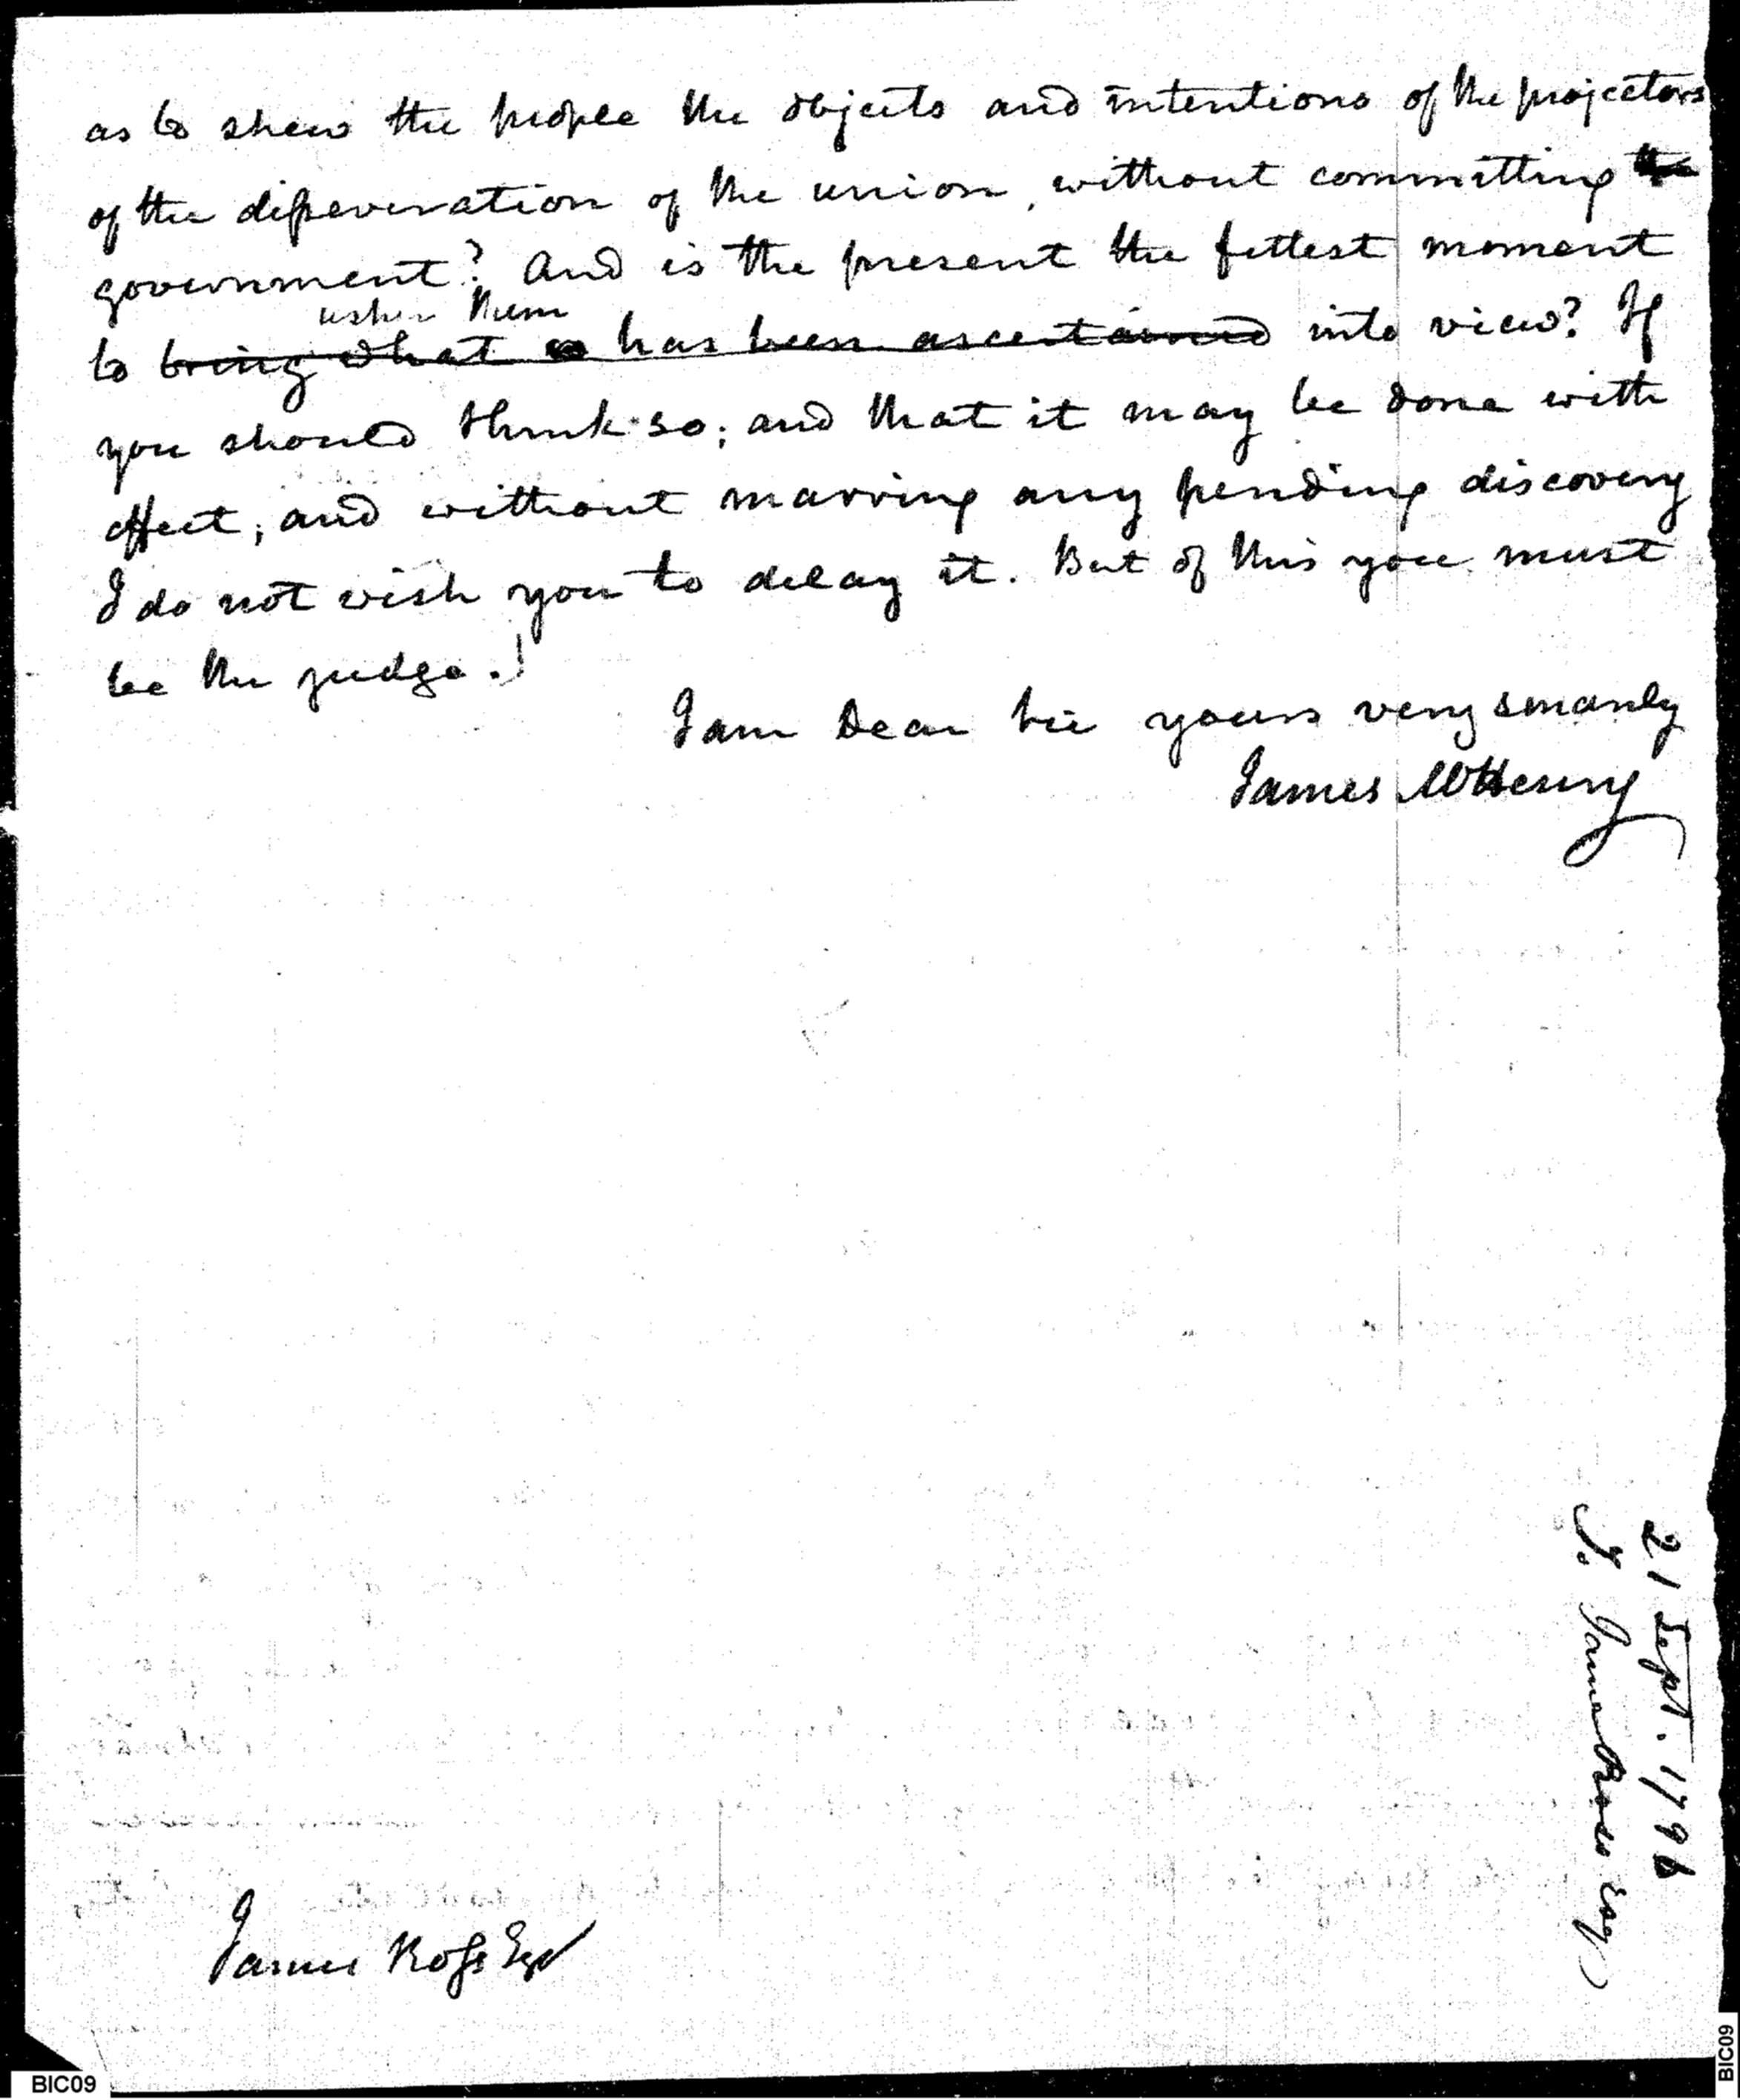 as to shew the people the objects and intentions of the projectors
of the disseveration of the union, without committing the
government? And is the present the fittest moment
usher them
to bring what has been ascertained into view? If
you should think so; and that it may be done with
effect, and without marring any pending discovery
I do not wish you to delay it. But of this you must
be the judge.
I am Dear Sir yours very sincerely
James McHenry
21 Sept. 1796
To James Ross Esq
James Ross Esqr
BIC09
BIC09